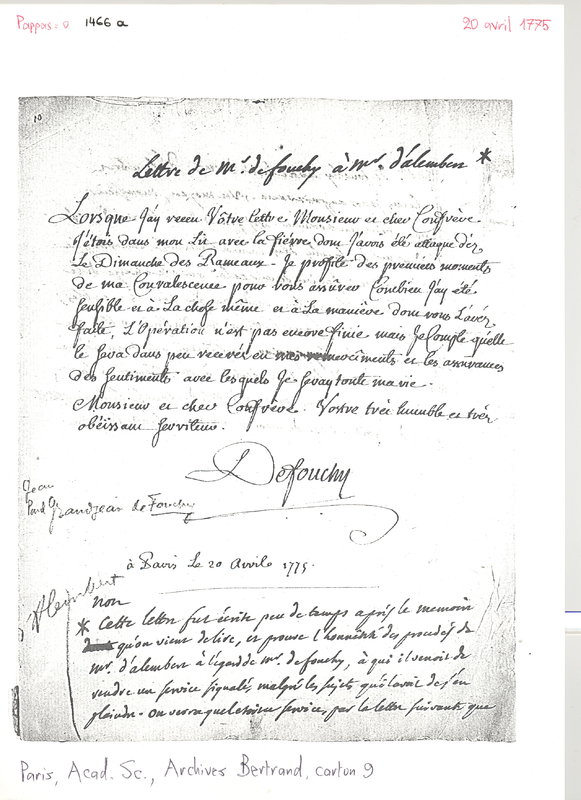 Pappas : 0 1466 a
20 avril 1775
10
Lettre de Mr. de fouchy à Mr. d'alembert *
Lorsque J'ay receu Vôtre lettre Monsieur et cher Confrère
J'étois dans mon Lit avec la fièvre dont J'avois été attaqué dès
Le Dimanche des Rameaux. Je profite des premiers moments
de ma Convalescence pour vous assûrer Combien J'ay été
sensible et à La chose même et à La manière dont vous L'avez
faite. L'Opération n'est pas encore finie mais Je Compte qu'elle
le sera dans peu recevés en mes remerciments et les assurances
des sentiments avec lesquels Je seray toute ma vie.
Monsieur et cher Confrère. Vostre très humble et très
obéissant serviteur.
Defouchy
Jean
Paul Grandjean de Fouchy
à Paris Le 20 Avrile 1775.
d'Alembert
non
* Cette lettre fut écrite peu de temps après le memoire
qu'on vient de lire, et prouve l'honnêteté des procedés de
Mr. d'alembert à l'égard de Mr. de fouchy, à qui il venoit de
rendre un service signalé, malgré les sujets qu'il avoit de s'en
plaindre. On verra quel étoit ce service, par la lettre suivante que
Paris, Acad. Sc., Archives Bertrand, carton 9